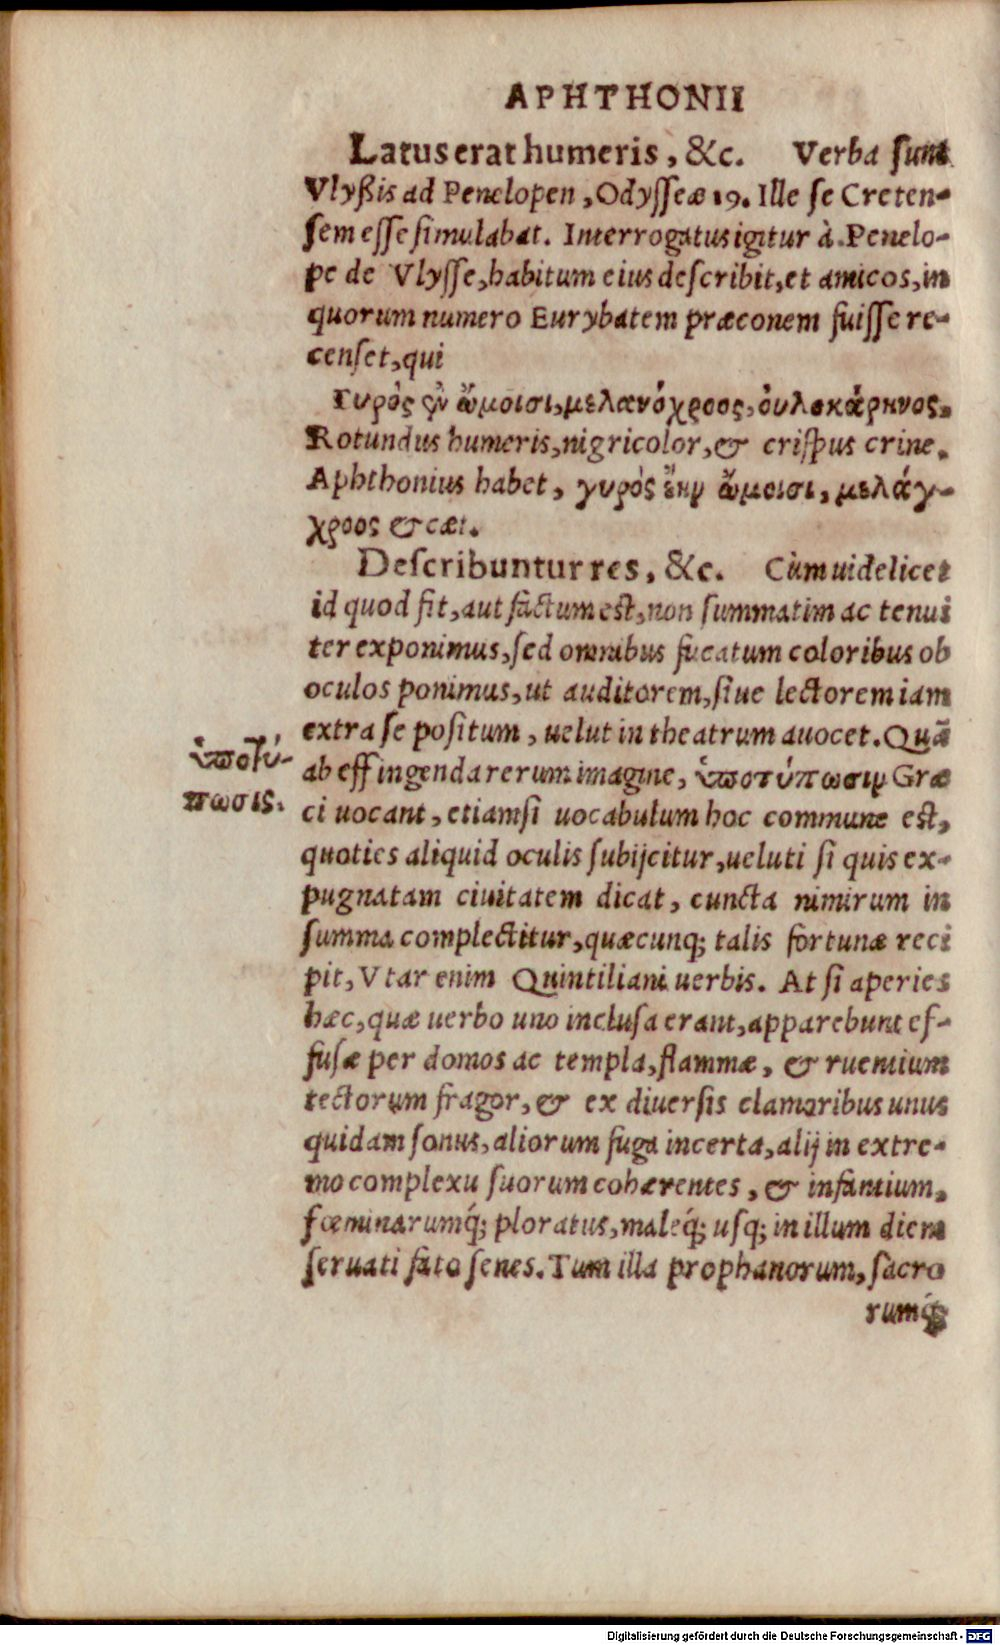 APHTHONII
Latus erat humeris, &c. Verba sunt
Vlyßis ad Penelopen, Odysseæ 19. Ille se Creten-
sem esse simulabat. Interrogatus igitur à Penelo-
pe de Vlysse, habitum eius describit, et amicos, in
quorum numero Eurybatem præconem fuisse re-
censet, qui
Γυρὸς ἦν ὤμοισι, μελανόχροος, οὐλοκάρηνος.
Rotundus humeris, nigricolor, & crispus crine.
Aphthonius habet, γυρὸς ἔην ὤμοισι, μελάγ-
χροος & cæt.
Describuntur res, &c. Cùm uidelicet
id quod fit, aut factum est, non summatim ac tenui
ter exponimus, sed omnibus fucatum coloribus ob
oculos ponimus, ut auditorem, siue lectorem iam
extra se positum, uelut in theatrum auocet. Quã
ὑποτύ-
πωσις.
ab effingenda rerum imagine, ὑποτύπωσιν Græ
ci uocant, etiamsi uocabulum hoc commune est,
quoties aliquid oculis subijcitur, ueluti si quis ex-
pugnatam ciuitatem dicat, cuncta nimirum in
summa complectitur, quæcunq; talis fortunæ reci
pit, Vtar enim Quintiliani uerbis. At si aperies
hæc, quæ uerbo uno inclusa erant, apparebunt ef-
fusæ per domos ac templa, flammæ, & ruentium
tectorum fragor, & ex diuersis clamoribus unus
quidam sonus, aliorum fuga incerta, alij in extre-
mo complexu suorum cohærentes, & infantium,
fœminarumq́; ploratus, maleq́; usq; in illum diem
seruati fato senes. Tum illa prophanorum, sacro
rumq́;
Digitalisierung gefördert durch die Deutsche Forschungsgemeinschaft - DFG